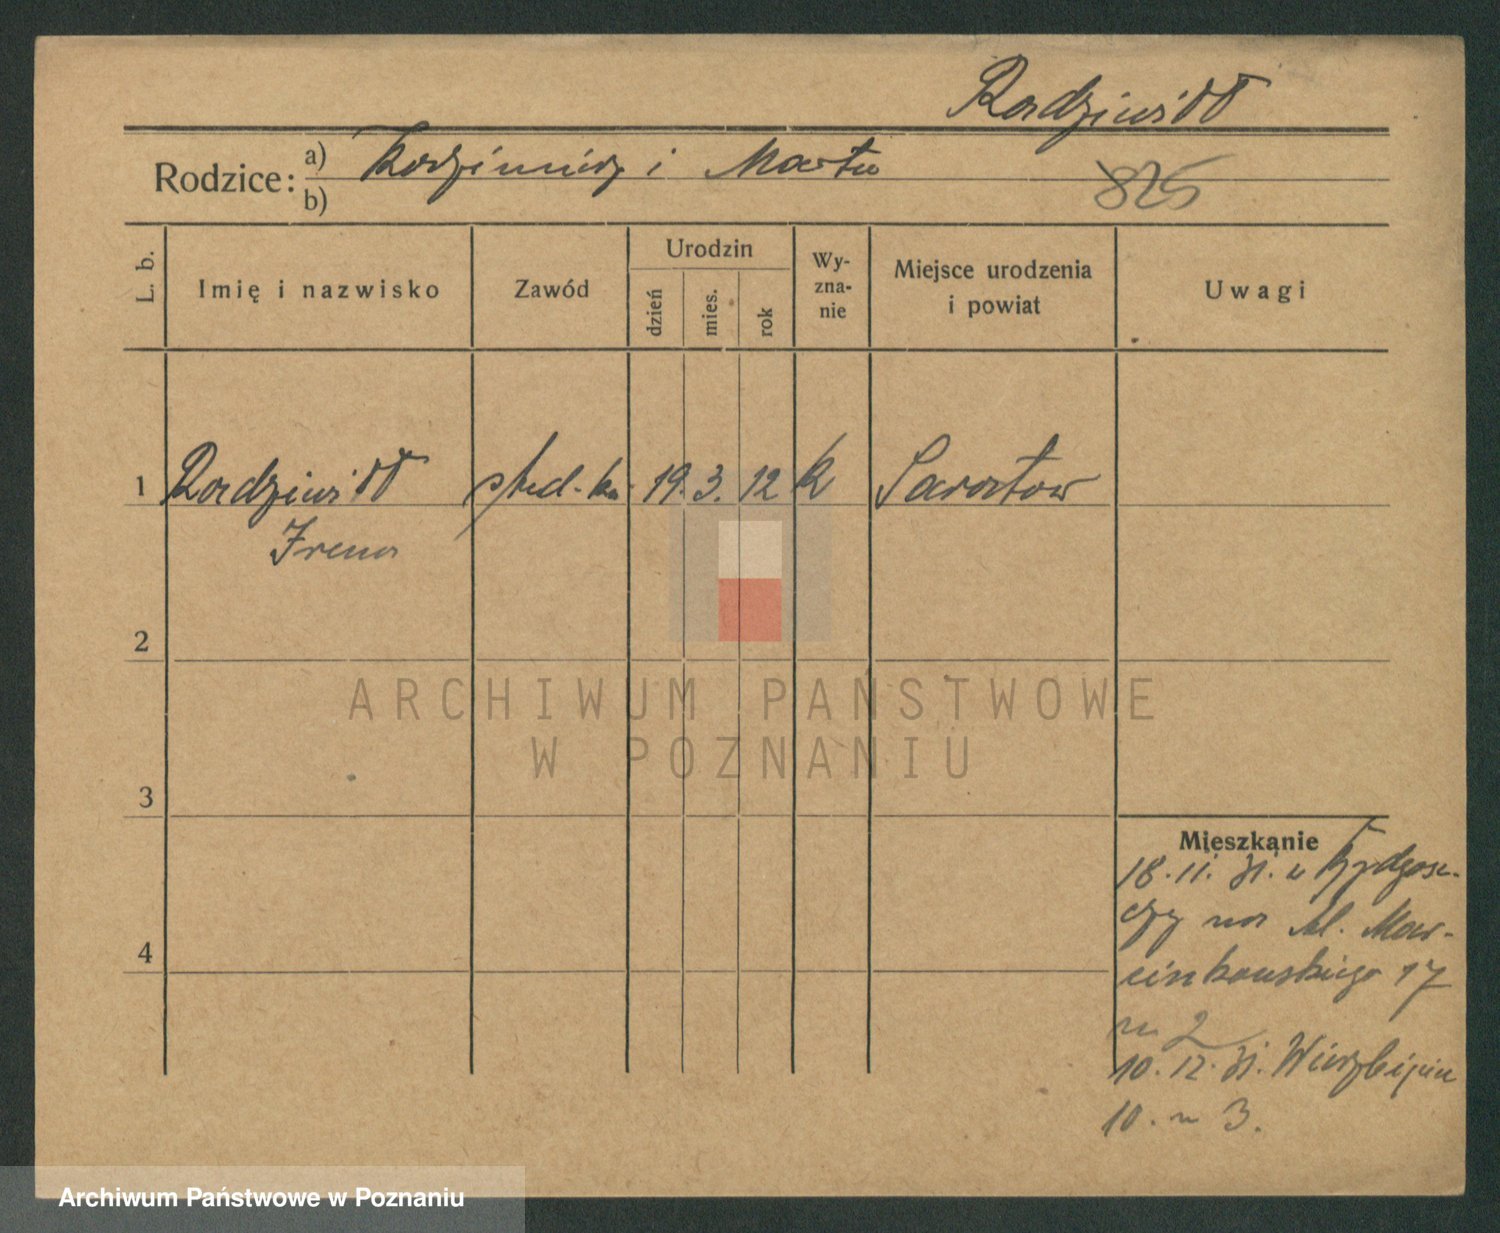 Radziwiłł
Rodzice: a) Kazimierz i Marta
b)
825
L. b.
Imię i nazwisko
Zawód
Urodzin
dzień
mies.
rok
Wy-
zna-
nie
Miejsce urodzenia
i powiat
Uwagi
1 Radziwiłł stud-ka 19. 3. 12 k Saratow
Irena
2
3
4
ARCHIWUM PAŃSTWOWE
W POZNANIU
Mieszkanie
18. 11. 31. z Bydgosz-
czy na Al. Mar-
cinkowskiego 17
m 2
10. 12. 31. Wierzbięcice
10. m 3.
Archiwum Państwowe w Poznaniu